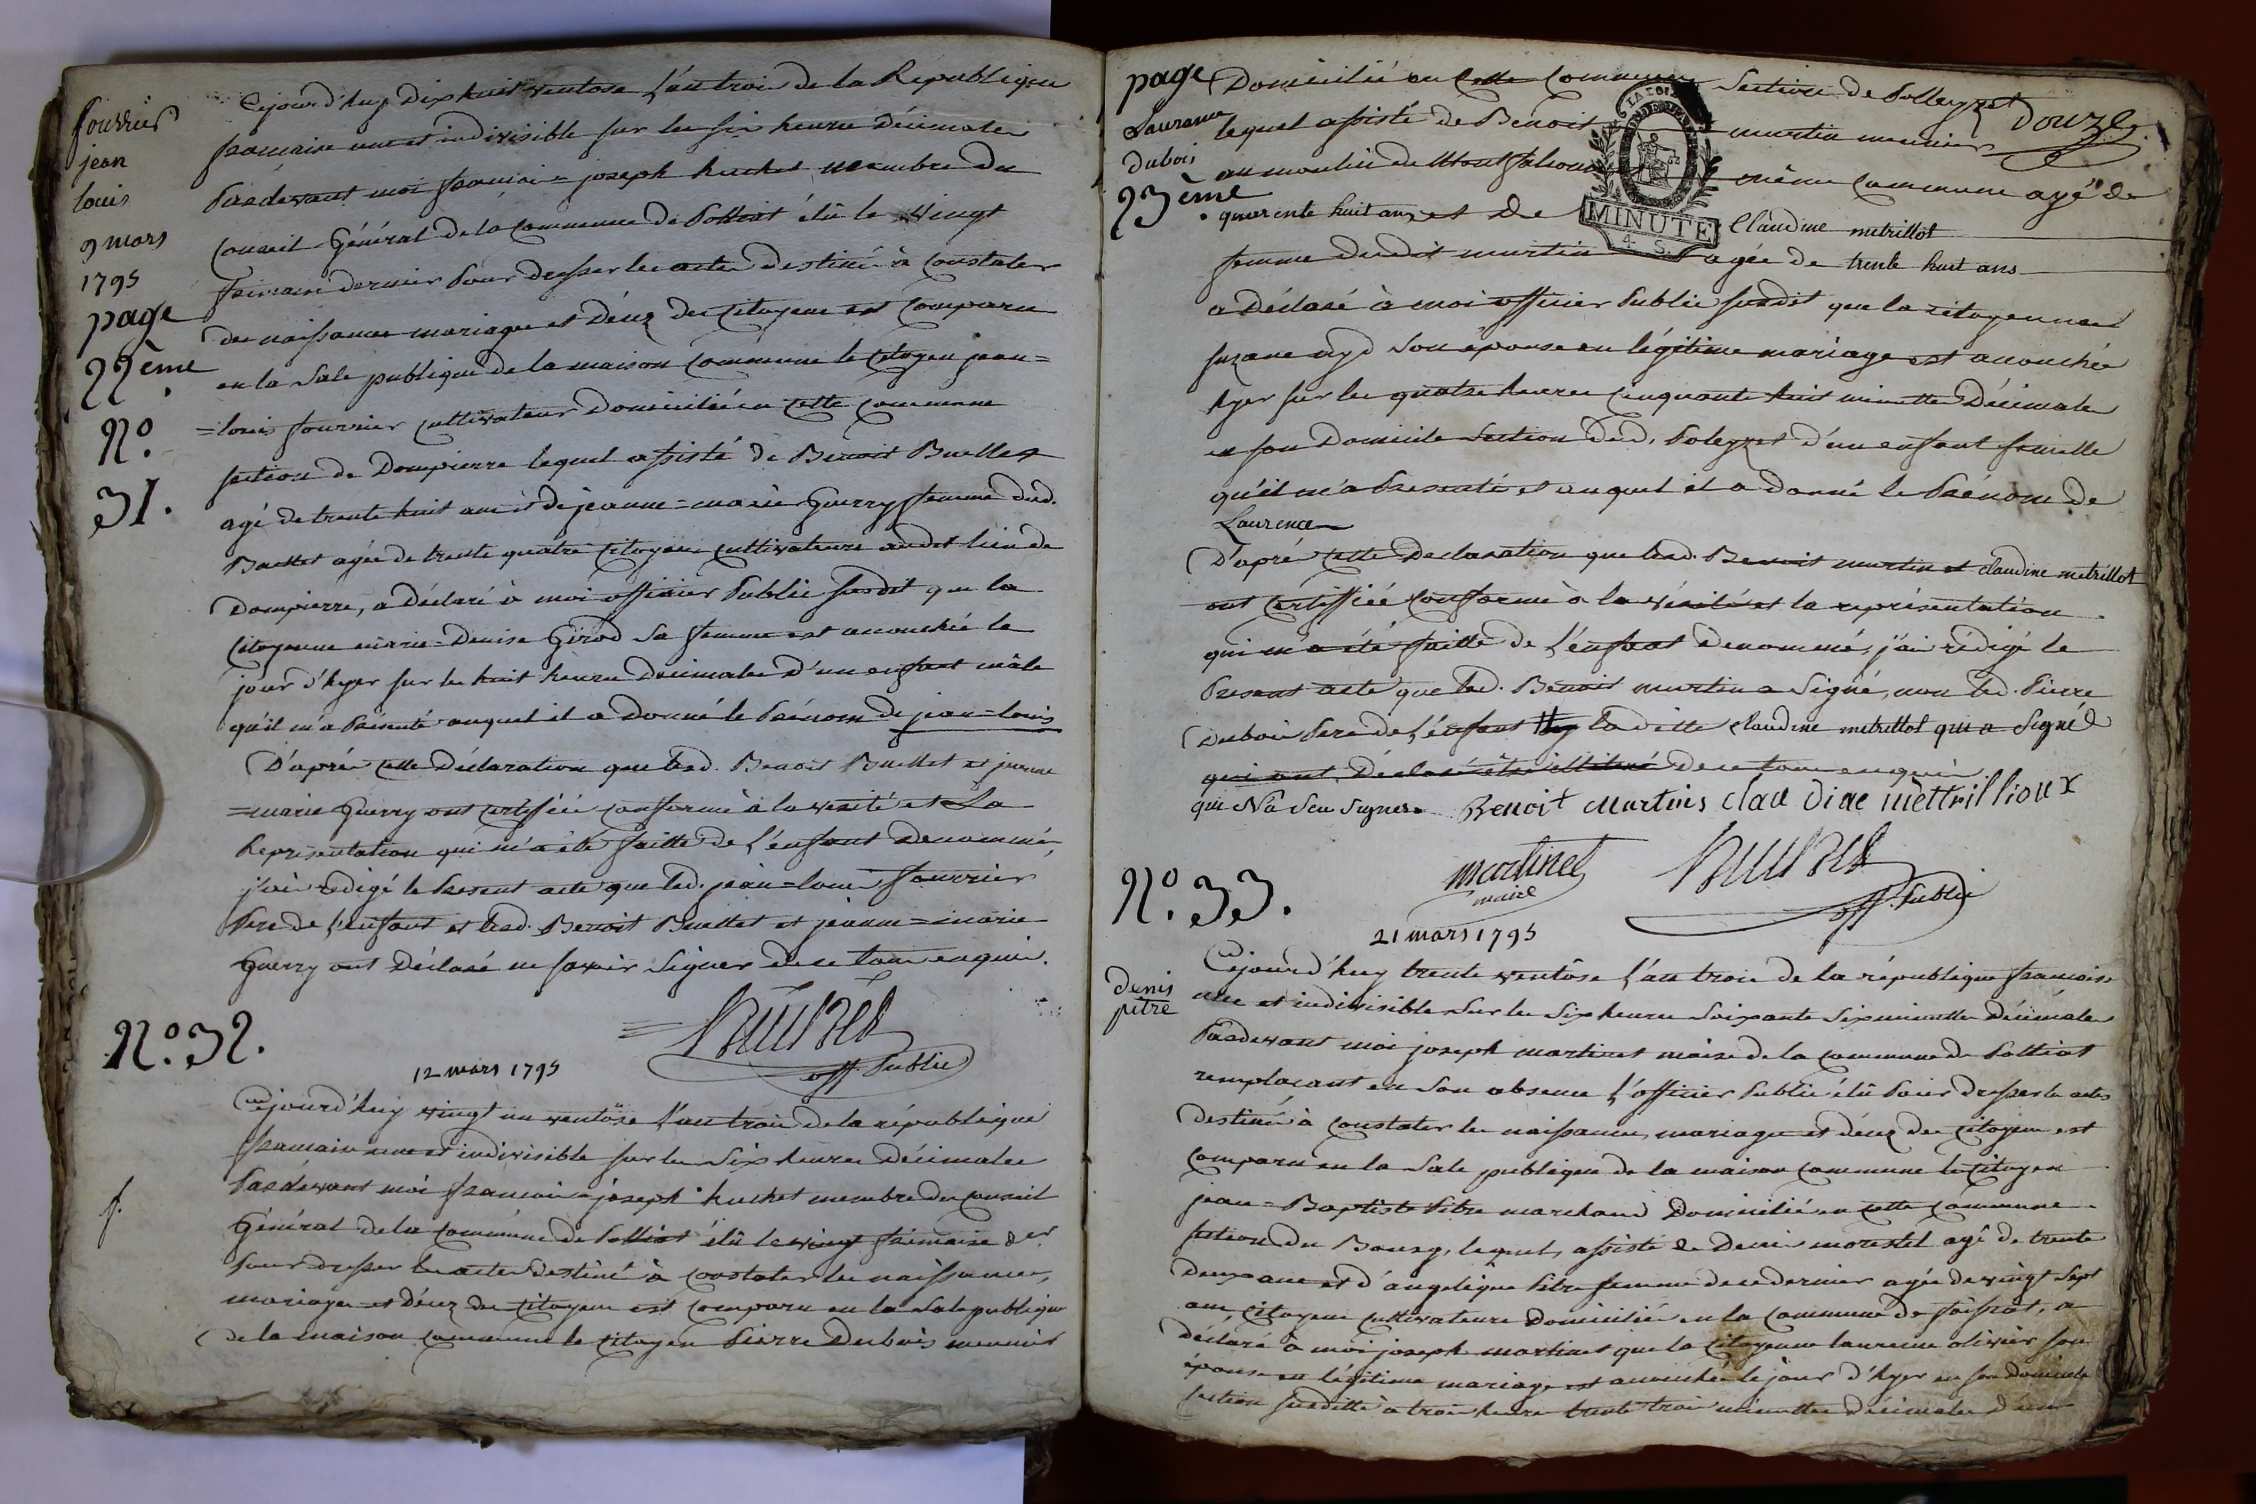 fourrier
jean
louis
9 mars
1795
page
22ème
N.º
31.
Cejourd'huy Dixhuit ventose l'an trois de la République
francaise une et indivisible sur les six heures Décimales
Pardevant moi francois=joseph huchet membre du
Conseil Général de la Commune de Polliat élû le vingt
frimaire dernier Pour dresser les actes destinés à Constater
les naissances mariages et Décez des Citoyens est Comparu
en la Sale publique de la maison Commune le Citoyen jean=
=louis fourrier cultivateur Domicilié en cette Commune
section de Dompierre lequel assisté de Benoit Buellet
agé de trente huit ans et de jeanne=marie Guerry femme dud.
Buellet agée de trente quatre Citoyens Cultivateurs audit lieu de
Dompierre, a Déclaré à moi officier Public susdit que la
Citoyenne marie=Denise Girod Sa femme est accouchée le
jour d'hyer sur les huit heures Décimales d'un enfant mâle
qu'il m'a Présenté auquel il a Donné le Prénom de jean=louis
D'aprés cette Déclaration que lesd. Benoit Buellet et jeanne
=marie Guerry ont certifiée conforme à la vérité et La
Représentation qui m'a été faitte de l'enfant denommé,
j'ai redigé le Present acte que led. jean=louis fourrier
Pere de l'enfant et lesd. Benoit Buellet et jeanne=marie
Guerry ont Déclaré ne savoir Signer de ce tous enquis.
off. Public
N.º 32.
12 mars 1795
f.
Cejourd'huy vingt un ventôse l'an trois de la république
francaise une et indivisible sur les Six heures Décimales
Pardevant moi francois=joseph huchet membre du conseil
Général de la Commune de Polliat élû le vingt frimaire der
Pour dresser les actes destinés à Constater les naissances,
mariages et Décez des Citoyens est Comparu en la Sale publique
de la maison Commune le Citoyen Pierre Dubois meunier
page
Laurence
dubois
23ème
Domicilié en Cette Commune Section de Polleyzet
douze
lequel assisté de Benoit martin meunier
au moulin de Montfalcon même Commune agé de
quarente huit ans et de Claudine metrillot
LA LOI
MINUTE
4. S.
femme dudit martin agée de trente huit ans
a Déclaré à moi officier Public susdit que la citoyenne
Suzane Son épouse en légitime mariage est accouchée
hyer sur les quatre heures cinquante huit minuttes Décimales
en son Domicile Section dud. Poleyzet d'un enfant femelle
qu'il m'a Presenté et auquel il a Donné le Prénom de
Laurence
D'aprés cette Declaration que lesd. Benoit martin et claudine metrillot
ont certiffiée Conforme à la vérité et la représentation
qui m'a été faitte de l'enfant Denommé, j'ai rédigé le
Present acte que led. Benoit martin a Signé, non led. Pierre
Dubois Pere de l'enfant laditte claudine metrillot qui a Signé
qui ont Déclaré être illitéré de ce tous enquis
qui Na Seu Signer. Benoit Martins clau dine mèttrillioux
martinet
maire
off. Public
N.º 33.
21 mars 1795
denis
pitre
Cejourd'huy trente ventôse l'an trois de la république francoise
une et indivisible Sur les Six heures Soixante Six minuttes Décimales
Pardevant moi joseph martinet maire de la Commune de Polliat
remplacant en Son absence l'officier Public élû Pour dresser les actes
destinés à Constater les naissances, mariages et décez des Citoyens est
Comparu en la Sale publique de la maison Commune le Citoyen
jean=Baptiste Pitre marchand Domicilié en cette Commune
section du Bourg, lequel, assisté de Denis morestel agé de trente
deux ans et d'angelique Pitre femme de ce dernier agée de vingt Sept
ans Citoyens cultivateurs Domiciliés en la Commune de foissiat, a
déclaré à moi joseph martinet que la Citoyenne laurence olivier son
épouse en légitime mariage est accouchée le jour d'hyer en son Domicile
Section Susditte à trois heures trente trois minuttes Décimales d'un